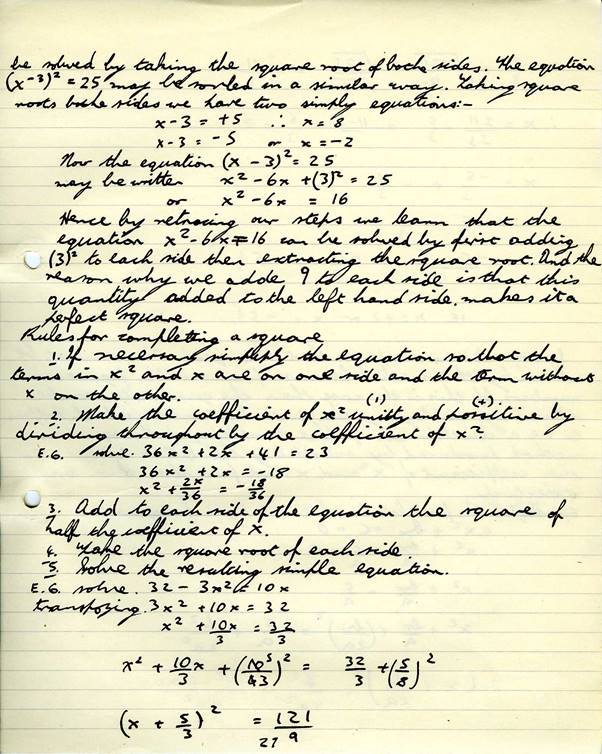 be solved by taking the square root of bothe sides. The equation
(x-3)² = 25 may be sovled in a similar way. Taking square
roots bothe sides we have two simply equations:-
x-3 = +5 ∴ x = 8
x-3 = -5 or x = -2
Now the equation (x - 3)² = 25
may be written x² - 6x + (3)² = 25
or x² - 6x = 16
Hence by retracing our steps we learn that the
equation x² - 6x = 16 can be solved by first adding
(3)² to each side then extracting the square root. And the
reason why we adde 9 to each side is that this
quantity added to the left hand side, makes it a
perfect square.
Rules for completing a square
1. If necersary simplify the equation so that the
terms in x² and x are on one side and the term without
x on the other. (1) (+)
2. Make the coefficient of x² unitty and possitive by
dividing throughout by the coefficient of x².
E.G. solve. 36x² + 2x + 41 = 23
36x² + 2x = -18
x² + 2x/36 = -18/36
3. Add to each side of the equation the square of
half the coefficient of x.
4. Take the square root of each side.
5. Solve the resulting simple equation.
E.G. solve. 32 - 3x² = 10x
transposing. 3x² + 10x = 32
x² + 10x/3 = 32/3
x² + 10/3 x + (10 5/3)² = 32/3 + (5/)²
(x + 5/3)² = 121/9
27